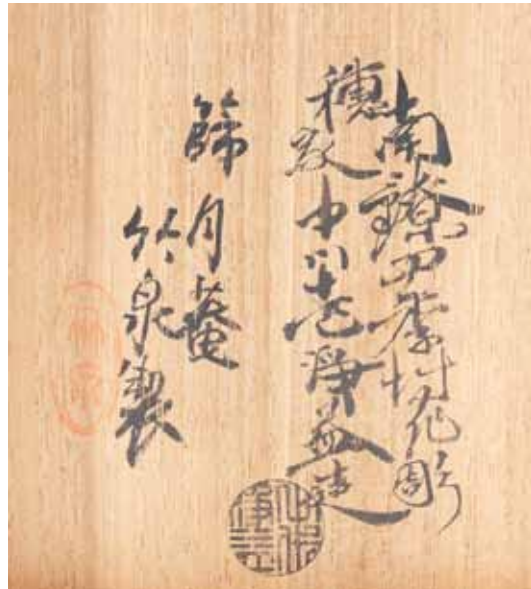 南鐐四季草花彫
中川浄益造
篩月菴
竹泉製